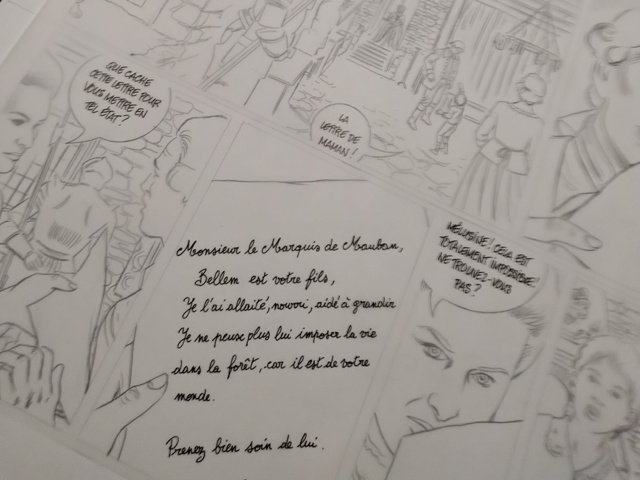 QUE CACHE
CETTE LETTRE POUR
VOUS METTRE EN
TEL ÉTAT?
LA
LETTRE DE
MAMAN!
Monsieur le Marquis de Mauban,
Bellem est votre fils,
Je l'ai allaité, nourri, aidé à grandir
Je ne peux plus lui imposer la vie
dans la forêt, car il est de votre
monde.
Prenez bien soin de lui.
MÉLUSINE! CELA EST
TOTALEMENT IMPOSSIBLE!
NE TROUVEZ-VOUS
PAS?